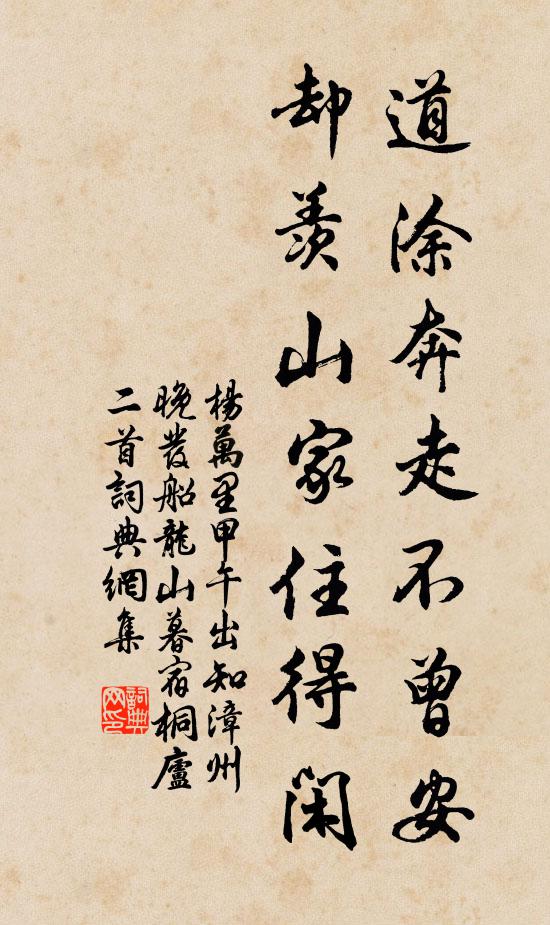 道涂奔走不曾安
却羨山家住得閑
楊萬里甲午出知漳州
晚發船龍山暮宿桐廬
二首詞典網集
詞典
网印